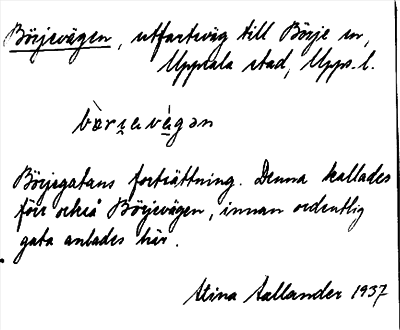 Börjevägen, utfartsväg till Börje sn,
Uppsala stad, Upps. l.
Börjegatans fortsättning. Denna kallades
förr också Börjevägen, innan ordentlig
gata anlades här.
Stina Sallander 1937